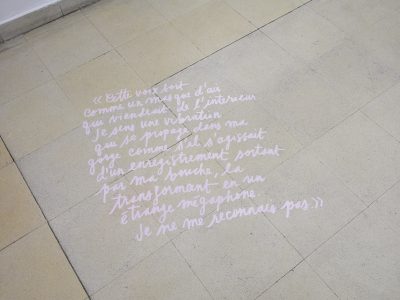 « Cette voix sort
comme un masque d'air
qui viendrait de l'intérieur
Je sens une vibration
qui se propage dans ma
gorge comme s'il s'agissait
d'un enregistrement sortant
par ma bouche, la
transformant en un
étrange mégaphone.
Je ne me reconnais pas. »